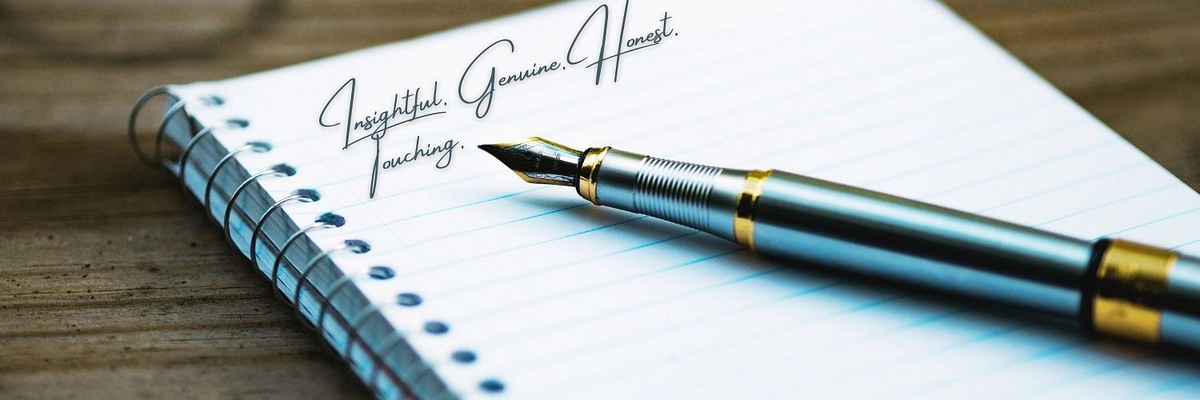 Insightful. Genuine. Honest.
Touching.